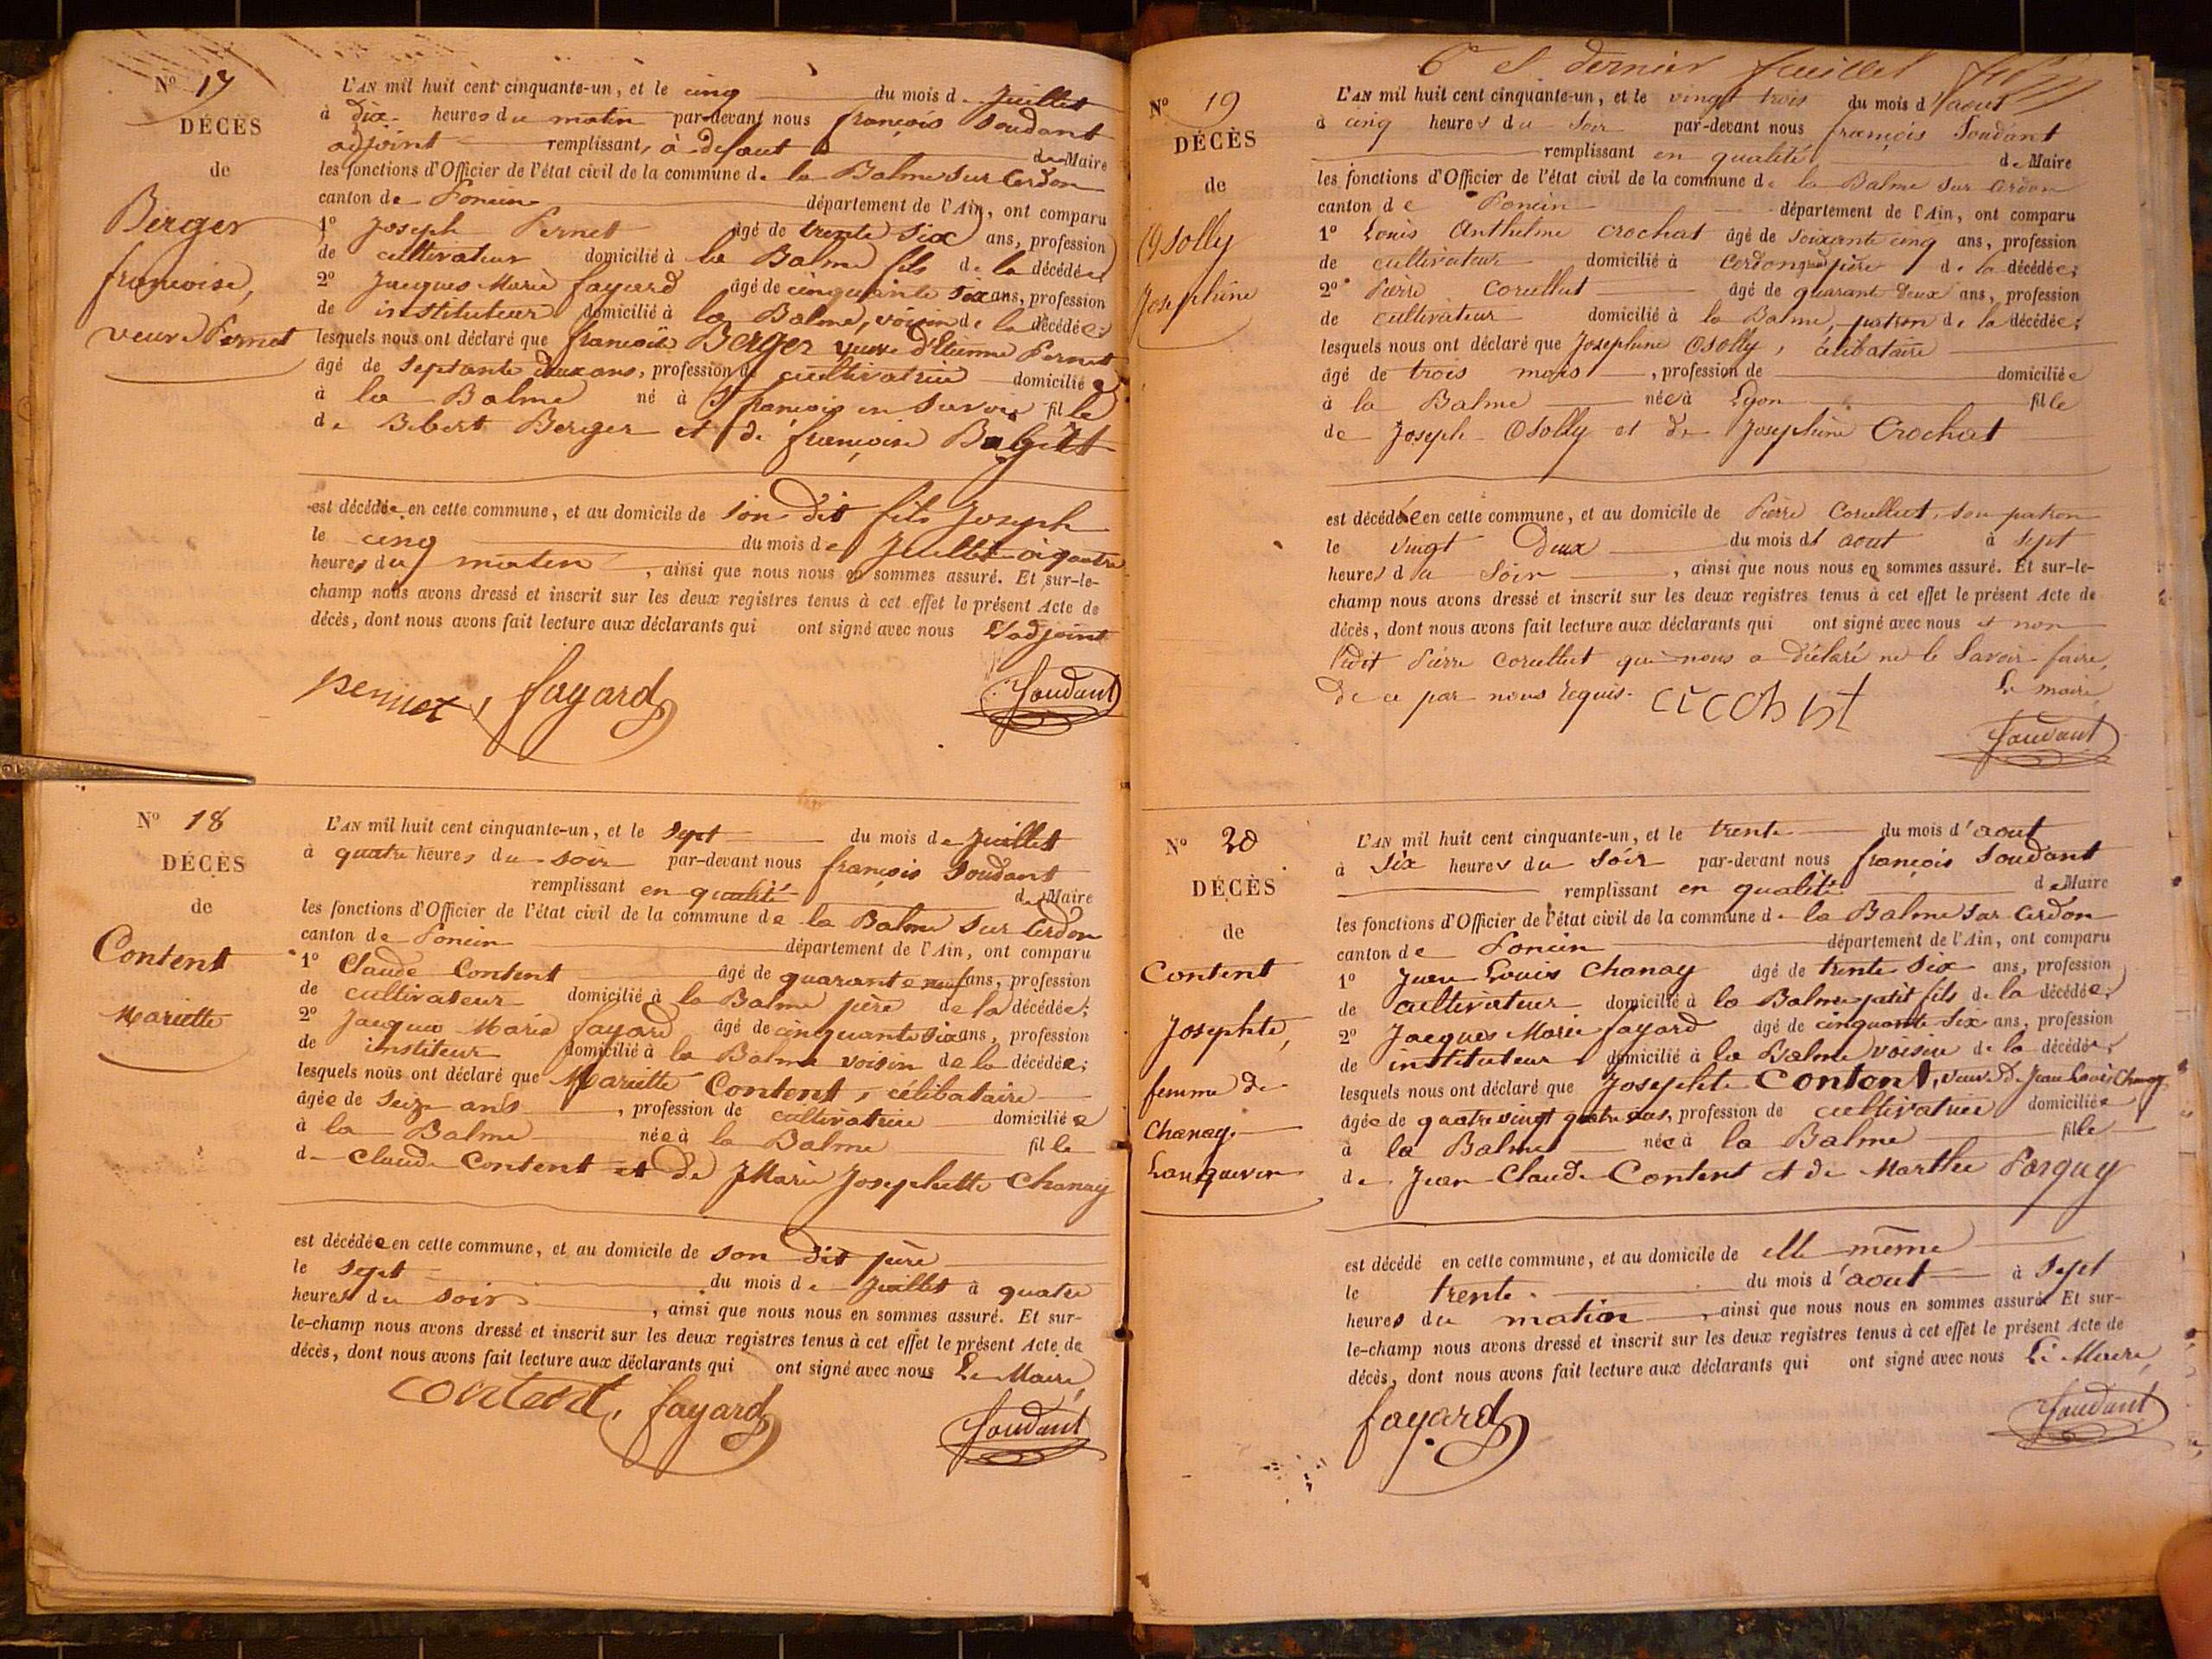 Nº 17
DÉCÈS
de
Berger
françoise,
veuve Pernet
L'AN mil huit cent cinquante-un, et le cinq du mois de Juillet
à dix heures du matin par-devant nous françois Soudant
adjoint remplissant, à defaut de Maire
les fonctions d'Officier de l'état civil de la commune de la Balme sur Cerdon
canton de Poncin département de l'Ain, ont comparu
1º Joseph Pernet âgé de trente six ans, profession
de cultivateur domicilié à la Balme fils de la décédée;
2º Jacques Marie fayard âgé de cinquante six ans, profession
de instituteur domicilié à la Balme, voisin de la décédée;
lesquels nous ont déclaré que françoise Berger veuve d'Etienne Pernet
âgé de septante deux ans, profession de cultivatrice domiciliée
à la Balme né à St françois en Savoie fille
de Bibert Berger et de françoise
est décédée en cette commune, et au domicile de son dit fils Joseph
le cinq du mois de Juillet à quatre
heures du matin, ainsi que nous nous en sommes assuré. Et sur-le-
champ nous avons dressé et inscrit sur les deux registres tenus à cet effet le présent Acte de
décès, dont nous avons fait lecture aux déclarants qui ont signé avec nous L'adjoint
pernet, fayard Soudant
Nº 18
DÉCÈS
de
Content
Mariette
L'AN mil huit cent cinquante-un, et le sept du mois de Juillet
à quatre heures du soir par-devant nous françois Soudant
remplissant en qualité de Maire
les fonctions d'Officier de l'état civil de la commune de la Balme sur Cerdon
canton de Poncin département de l'Ain, ont comparu
1º Claude Content âgé de quarante neuf ans, profession
de cultivateur domicilié à la Balme père de la décédée;
2º Jacques Marie fayard âgé de cinquante six ans, profession
de institeur domicilié à la Balme voisin de la décédée;
lesquels nous ont déclaré que Mariette Content, célibataire
âgée de seize ans, profession de cultivatrice domiciliée
à la Balme née à la Balme fille
de Claude Content et de Marie Josephette Chanay
est décédée en cette commune, et au domicile de son dit père
le sept du mois de Juillet à quatre
heures du soir, ainsi que nous nous en sommes assuré. Et sur-
le-champ nous avons dressé et inscrit sur les deux registres tenus à cet effet le présent Acte de
décès, dont nous avons fait lecture aux déclarants qui ont signé avec nous Le Maire,
content, fayard Soudant
6e et dernier feuillet
Nº 19
DÉCÈS
de
Osolly
Josephine
L'AN mil huit cent cinquante-un, et le vingt trois du mois d'aout
à cinq heures du soir par-devant nous françois Soudant
remplissant en qualité de Maire
les fonctions d'Officier de l'état civil de la commune de la Balme sur Cerdon
canton de Poncin département de l'Ain, ont comparu
1º Louis Anthelme Crochat âgé de soixante cinq ans, profession
de cultivateur domicilié à Cerdon grand père de la décédée;
2º Pierre Corullut âgé de quarante deux ans, profession
de cultivateur domicilié à la Balme, patron de la décédée;
lesquels nous ont déclaré que Josephine Osolly, célibataire
âgé de trois mois, profession de domiciliée
à la Balme née à Lyon fille
de Joseph Osolly et de Josephine Crochat
est décédée en cette commune, et au domicile de Pierre Corullut, son patron
le vingt deux du mois d'aout à sept
heures du soir, ainsi que nous nous en sommes assuré. Et sur-le-
champ nous avons dressé et inscrit sur les deux registres tenus à cet effet le présent Acte de
décès, dont nous avons fait lecture aux déclarants qui ont signé avec nous et non
ledit Pierre Corullut qui nous a déclaré ne le Savoir faire,
de ce par nous requis. Le maire,
Soudant
Nº 20
DÉCÈS
de
Content
Josephte,
femme de
Chanay
L'AN mil huit cent cinquante-un, et le trente du mois d'aout
à six heures du soir par-devant nous françois Soudant
remplissant en qualité de Maire
les fonctions d'Officier de l'état civil de la commune de la Balme sur Cerdon
canton de Poncin département de l'Ain, ont comparu
1º Jean Louis Chanay âgé de trente six ans, profession
de cultivateur domicilié à la Balme petit fils de la décédée;
2º Jacques Marie fayard âgé de cinquante six ans, profession
de instituteur domicilié à la Balme voisin de la décédée;
lesquels nous ont déclaré que Josephte Content, veuve de Jean Louis Chanay
âgée de quatre vingt quatre ans, profession de cultivatrice domiciliée
à la Balme née à la Balme fille
de Jean Claude Content et de Marthe Porguy
est décédé en cette commune, et au domicile de elle même
le trente du mois d'aout à sept
heures du matin, ainsi que nous nous en sommes assuré. Et sur-
le-champ nous avons dressé et inscrit sur les deux registres tenus à cet effet le présent Acte de
décès, dont nous avons fait lecture aux déclarants qui ont signé avec nous Le Maire,
fayard Soudant